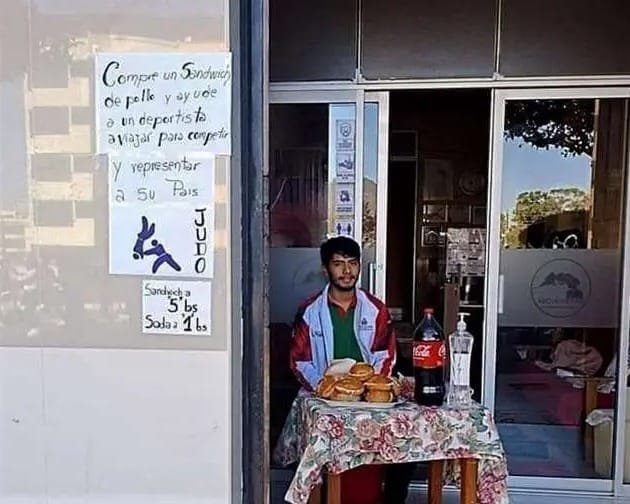 Compre un Sandwich
de pollo y ayude
a un deportista
a viajar para competir
y representar
a su Pais
JUDO
Sandwich a
"5" bs
Soda a "1" bs
Coca-Cola